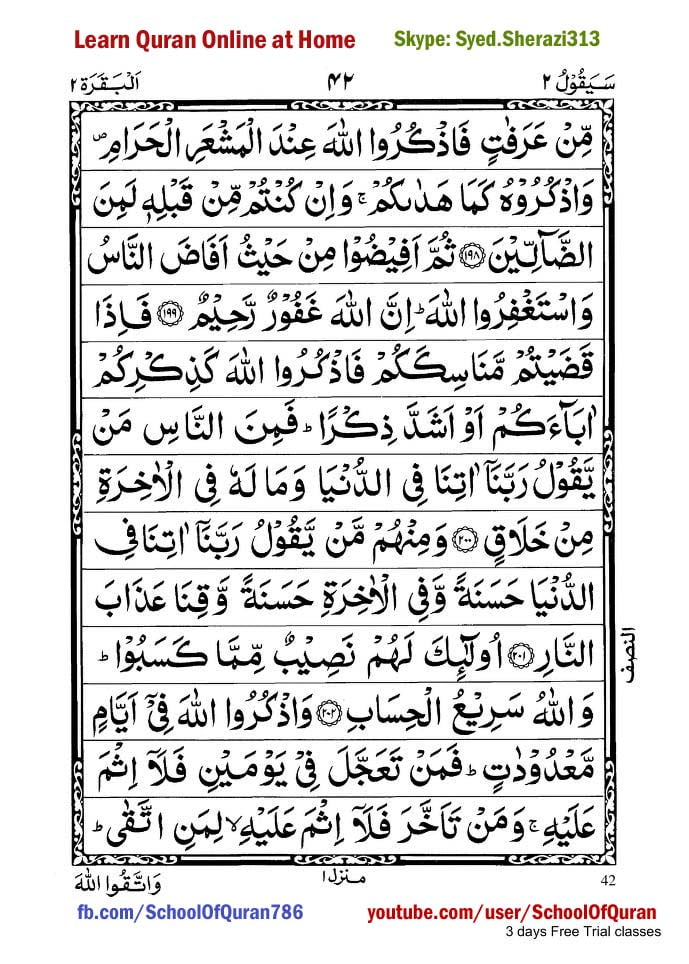 Learn Quran Online at Home Skype: Syed.Sherazi313
سَيَقُوْلُ ٢ ٤٢ اَلْبَقَرَة ٢
مِّنْ عَرَفٰتٍ فَاذْكُرُوا اللّٰهَ عِنْدَ الْمَشْعَرِ الْحَرَامِ ۪
وَاذْكُرُوْهُ كَمَا هَدٰىكُمْ ۚ وَاِنْ كُنْتُمْ مِّنْ قَبْلِهٖ لَمِنَ
الضَّآلِّيْنَ ﴿١٩٨﴾ ثُمَّ اَفِيْضُوْا مِنْ حَيْثُ اَفَاضَ النَّاسُ
وَاسْتَغْفِرُوا اللّٰهَ ؕ اِنَّ اللّٰهَ غَفُوْرٌ رَّحِيْمٌ ﴿١٩٩﴾ فَاِذَا
قَضَيْتُمْ مَّنَاسِكَكُمْ فَاذْكُرُوا اللّٰهَ كَذِكْرِكُمْ
اٰبَآءَكُمْ اَوْ اَشَدَّ ذِكْرًا ؕ فَمِنَ النَّاسِ مَنْ
يَّقُوْلُ رَبَّنَاۤ اٰتِنَا فِى الدُّنْيَا وَمَا لَهٗ فِى الْاٰخِرَةِ
مِنْ خَلَاقٍ ﴿٢٠٠﴾ وَمِنْهُمْ مَّنْ يَّقُوْلُ رَبَّنَاۤ اٰتِنَا فِى
الدُّنْيَا حَسَنَةً وَّفِى الْاٰخِرَةِ حَسَنَةً وَّقِنَا عَذَابَ
النَّارِ ﴿٢٠١﴾ اُولٰٓئِكَ لَهُمْ نَصِيْبٌ مِّمَّا كَسَبُوْا ؕ
وَاللّٰهُ سَرِيْعُ الْحِسَابِ ﴿٢٠٢﴾ وَاذْكُرُوا اللّٰهَ فِىْۤ اَيَّامٍ
مَّعْدُوْدٰتٍ ؕ فَمَنْ تَعَجَّلَ فِىْ يَوْمَيْنِ فَلَاۤ اِثْمَ
عَلَيْهِ ۚ وَمَنْ تَاَخَّرَ فَلَاۤ اِثْمَ عَلَيْهِ ۙ لِمَنِ اتَّقٰى ؕ
النصف
42 منزل ١ وَاتَّقُوا اللّٰهَ
fb.com/SchoolOfQuran786 youtube.com/user/SchoolOfQuran
3 days Free Trial classes